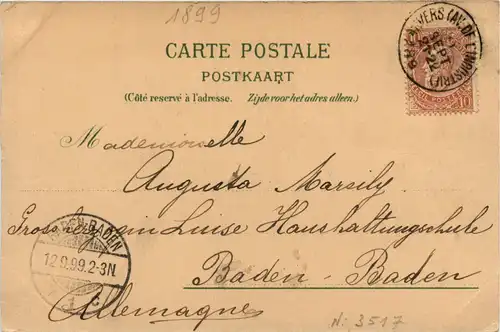 1899
CARTE POSTALE
POSTKAART
(Côté reservé à l'adresse. Zijde voor het adres alleen.)
ANVERS (AV. DE L'INDUSTRIE)
SEPT
10
Mademoiselle
Augusta Marsily
Grossherzogin Luise Haushaltungschule
Baden - Baden
Allemagne
BADEN-BADEN
12.9.99.2-3N
1 c
N: 3517